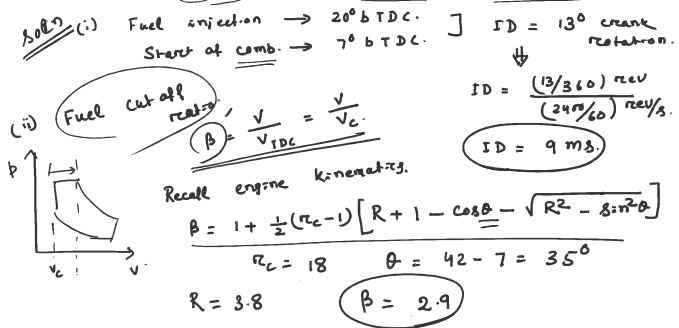 Soln (i) Fuel injection → 20° b TDC. ] ID = 13° crank rotation.
Start of comb. → 7° b TDC.
⇓
ID = (13/360) rev / (2400/60) rev/s.
ID = 9 ms.
(ii) Fuel cut off ratio,
β = V/V_TDC = V/V_c.
p
V_c V
Recall engine kinematics.
β = 1 + 1/2 (r_c - 1) [R + 1 - cosθ - √(R² - sin²θ)]
r_c = 18 θ = 42 - 7 = 35°
R = 3.8 β = 2.9